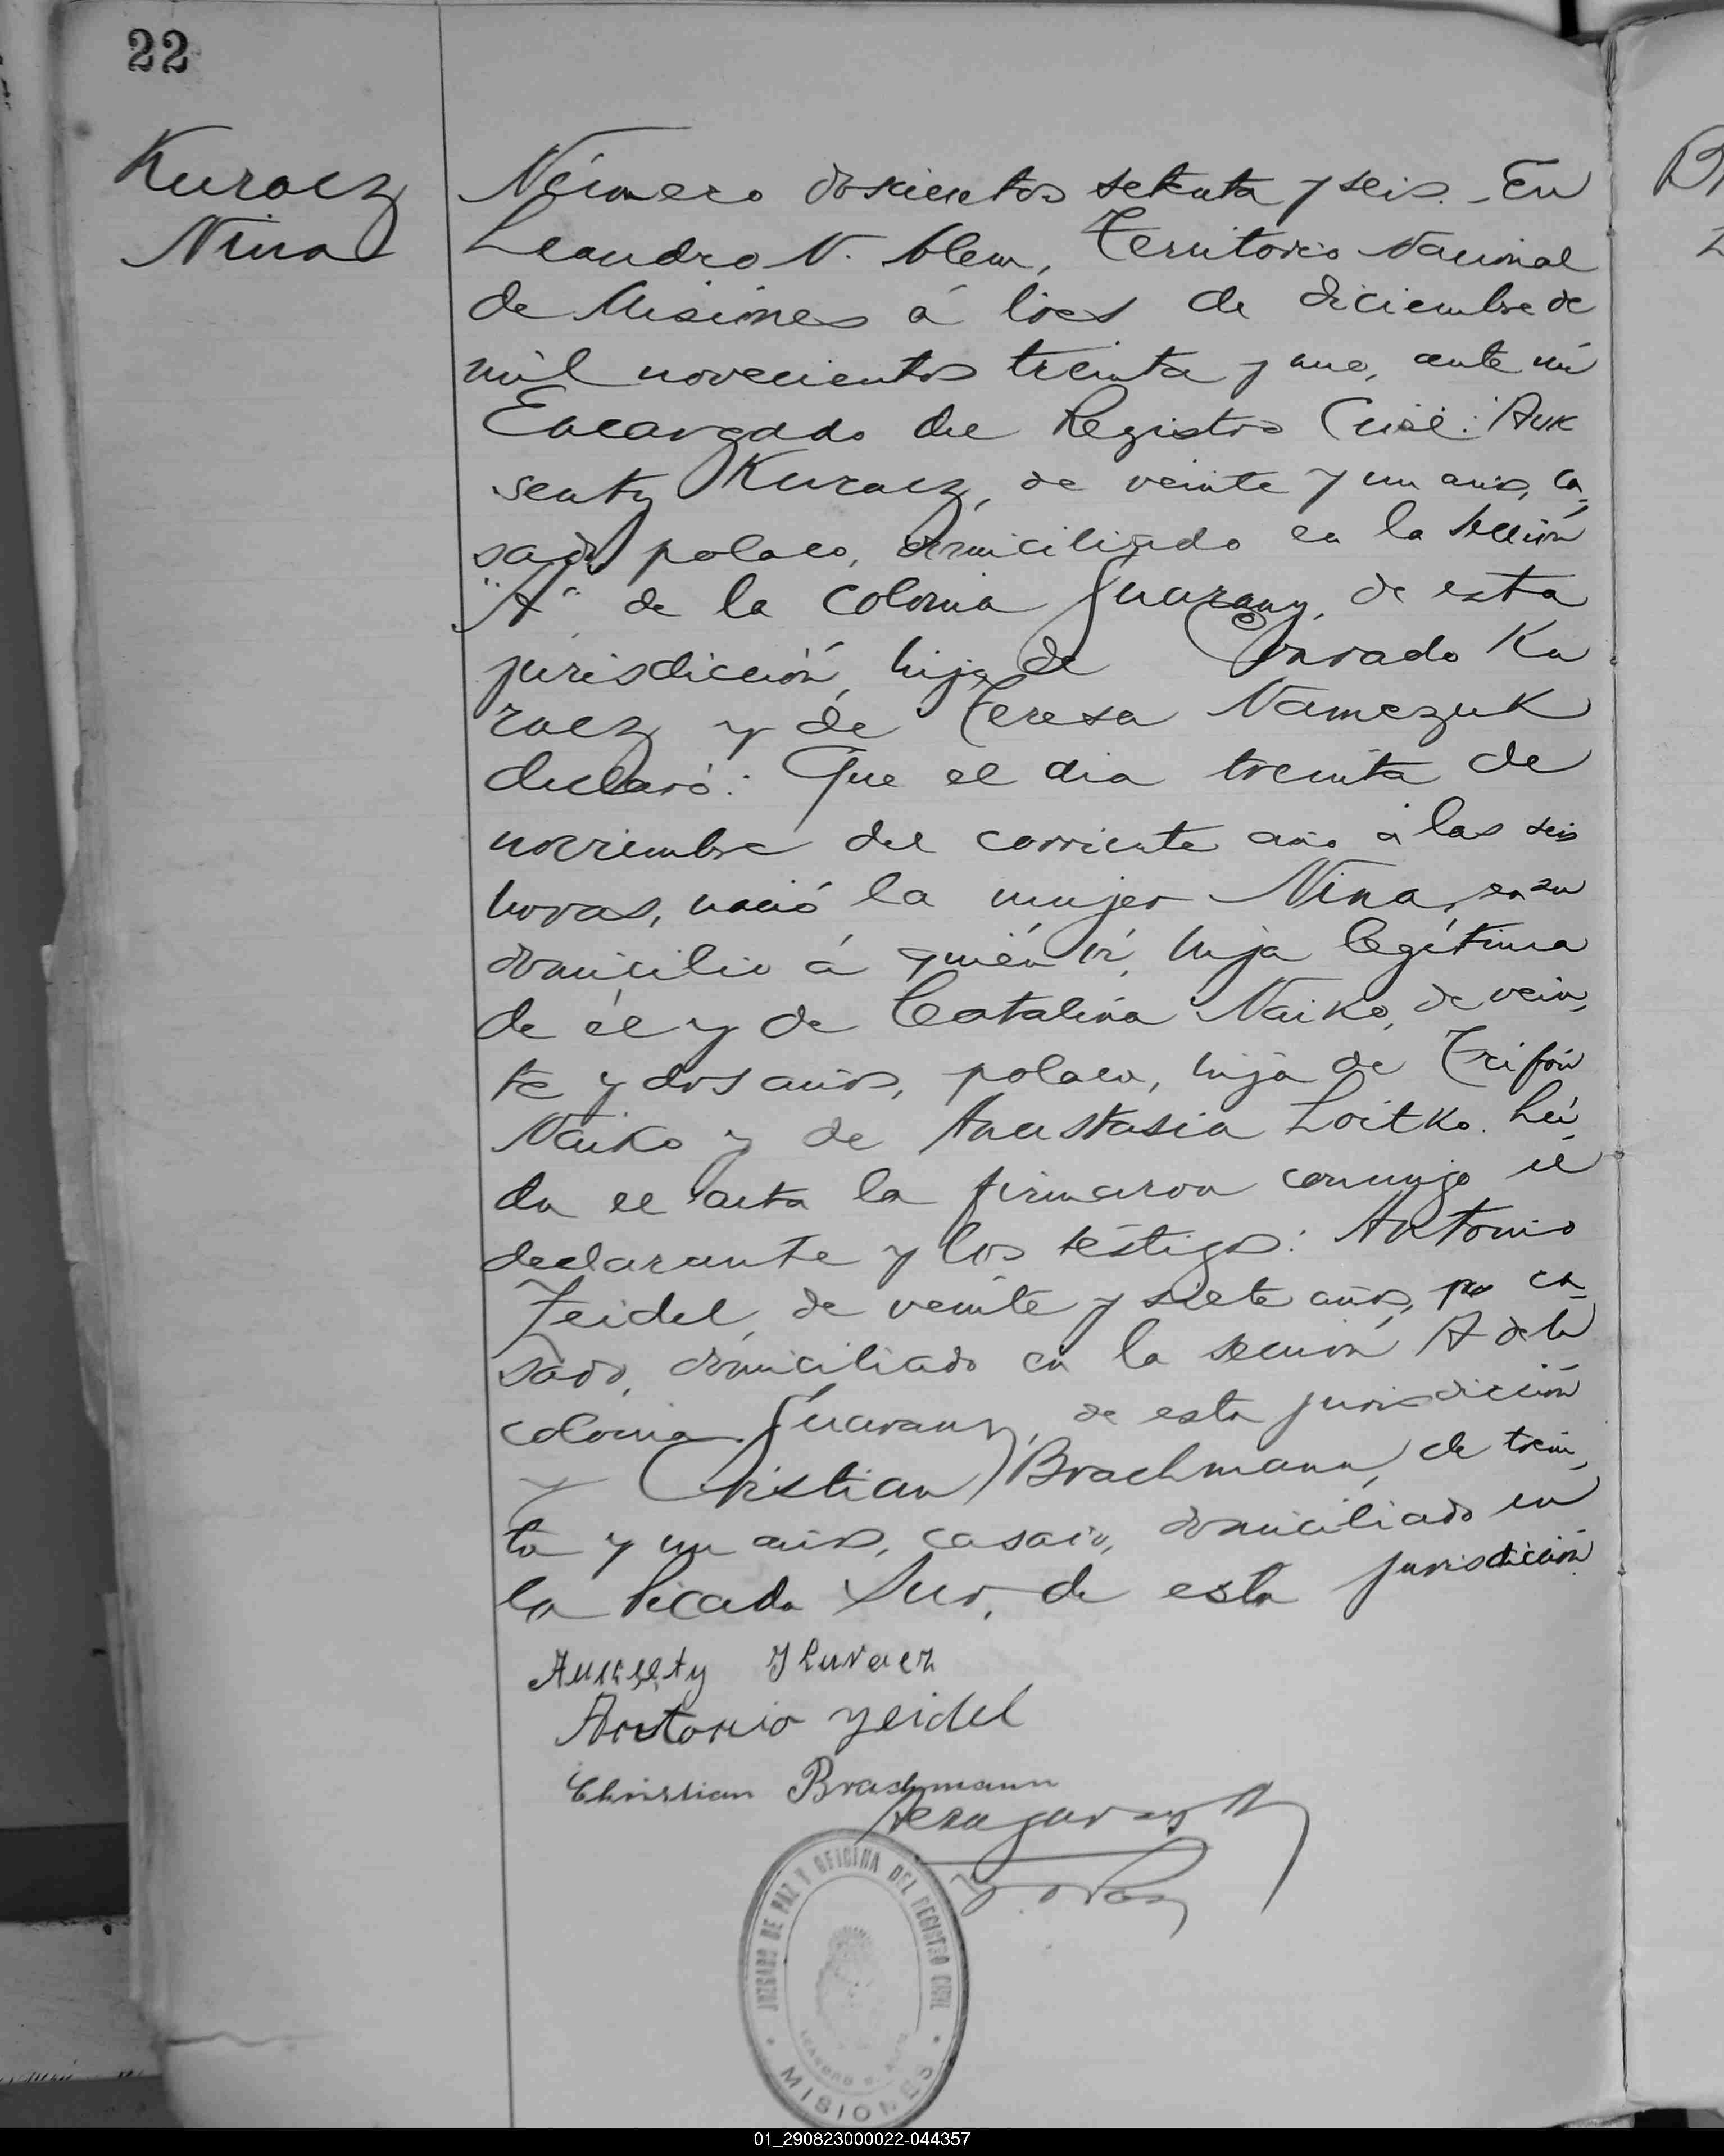 22
Kuracz
Nina
Número doscientos setenta y seis. - En
Leandro N. Alem, Territorio Nacional
de Misiones á tres de diciembre de
mil novecientos treinta y uno, ante mi
Encargado del Registro Civil: Auk
senty Kuracz, de veinte y un años, ca=
sado polaco, domiciliado en la sección
"A" de la colonia Guarany, de esta
jurisdicción, hijo de Conrado Ku
racz y de Teresa Namczuk
declaró: Que el dia treinta de
noviembre del corriente año á las seis
horas, nació la mujer Nina, en su
domicilio á quién ví, hija legítima
de él y de Catalina Naiko, de vein,
te y dos años, polaca, hija de Trifón
Naiko y de Anastasia Loitko. Leí
da el acta la firmaron conmigo el
declarante y los téstigos: Antonio
Zeidel, de veinte y siete años, ca=
sado, domiciliado en la sección A de la
colonia Guarany, de esta jurisdicción
y Cristian Brachmann, de trein,
ta y un años, casado, domiciliado en
la Picada Sur, de esta jurisdicción.
Kuracz
Antonio Zeidel
Christian Brachmann
JUZGADO DE PAZ Y OFICINA DEL REGISTRO CIVIL
LEANDRO N. ALEM
MISIONES
01_290823000022-044357